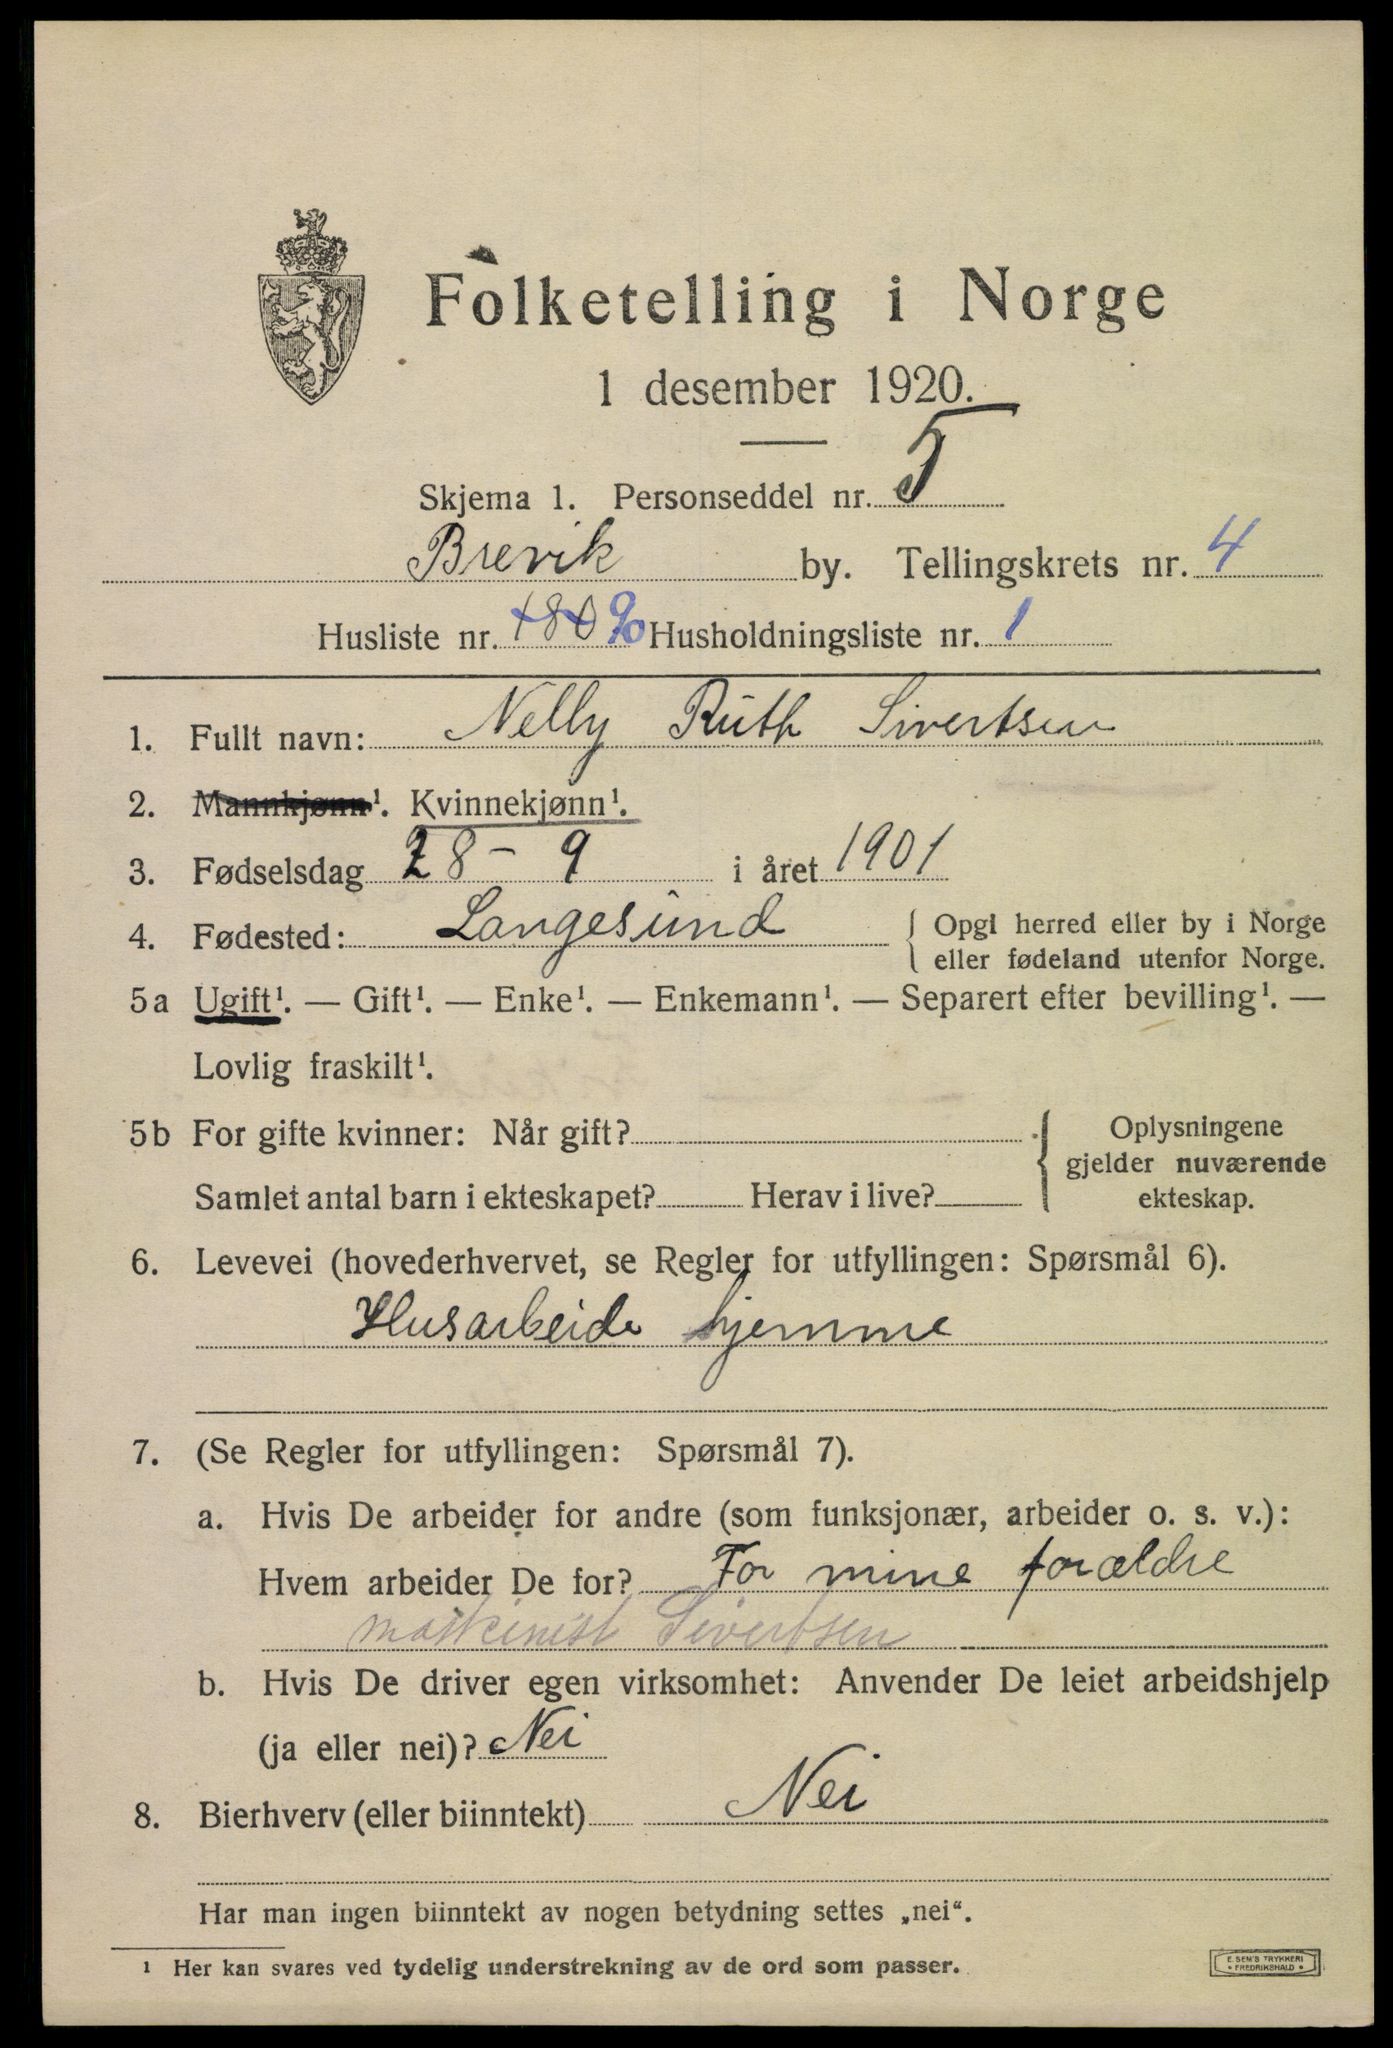 Folketelling i Norge
1 desember 1920.
Skjema 1. Personseddel nr. 5
Brevik by. Tellingskrets nr. 4
Husliste nr. 180 90 Husholdningsliste nr. 1
1. Fullt navn: Nelly Ruth Sivertsen
2. Mannkjønn¹. Kvinnekjønn¹.
3. Fødselsdag 28 - 9 i året 1901
4. Fødested: Langesund { Opgi herred eller by i Norge
eller fødeland utenfor Norge.
5a Ugift¹. — Gift¹. — Enke¹. — Enkemann¹. — Separert efter bevilling¹. —
Lovlig fraskilt¹.
5b For gifte kvinner: Når gift?
Samlet antal barn i ekteskapet? Herav i live?
Oplysningene
gjelder nuværende
ekteskap.
6. Levevei (hovederhvervet, se Regler for utfyllingen: Spørsmål 6).
Husarbeide hjemme
7. (Se Regler for utfyllingen: Spørsmål 7).
a. Hvis De arbeider for andre (som funksjonær, arbeider o. s. v.):
Hvem arbeider De for? For mine forældre
maskinist Sivertsen
b. Hvis De driver egen virksomhet: Anvender De leiet arbeidshjelp
(ja eller nei)? Nei
8. Bierhverv (eller biinntekt) Nei
Har man ingen biinntekt av nogen betydning settes „nei“.
¹ Her kan svares ved tydelig understrekning av de ord som passer.
E. SEM'S TRYKKERI
• FREDRIKSHALD •